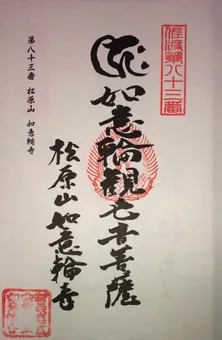 佐渡第八十三番
如意輪観世音菩薩
第八十三番 松原山 如意輪寺
松原山如意輪寺